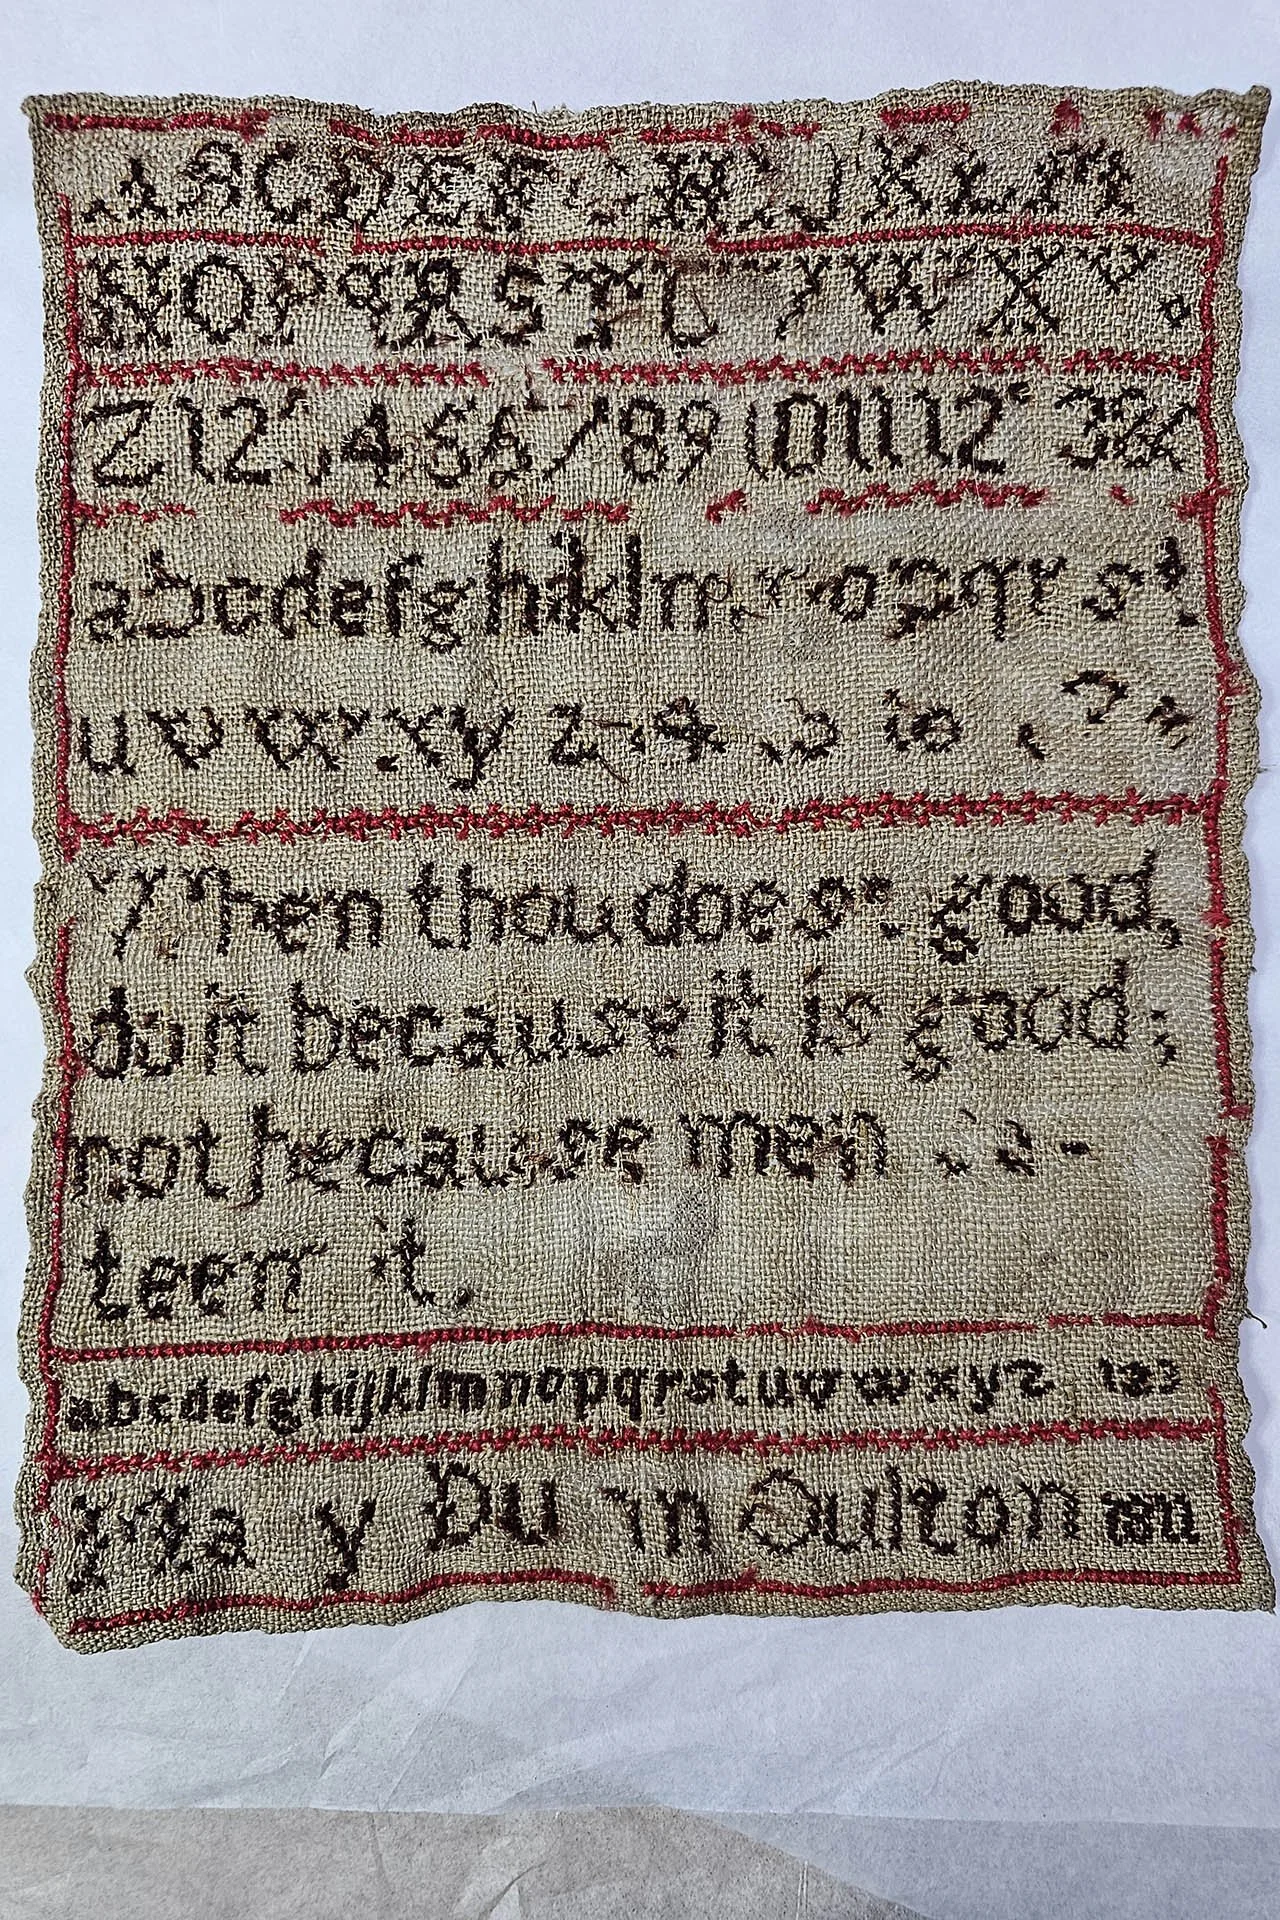 A B C D E F G H I J K L M
N O P Q R S T U V W X Y
Z 1 2 3 4 5 6 7 8 9 10 11 12 13 &
a b c d e f g h i k l m n o p q r s t
u v w x y z
When thou doest good,
do it because it is good;
not because men
teen it.
a b c d e f g h i j k l m n o p q r s t u v w x y z 1 2 3